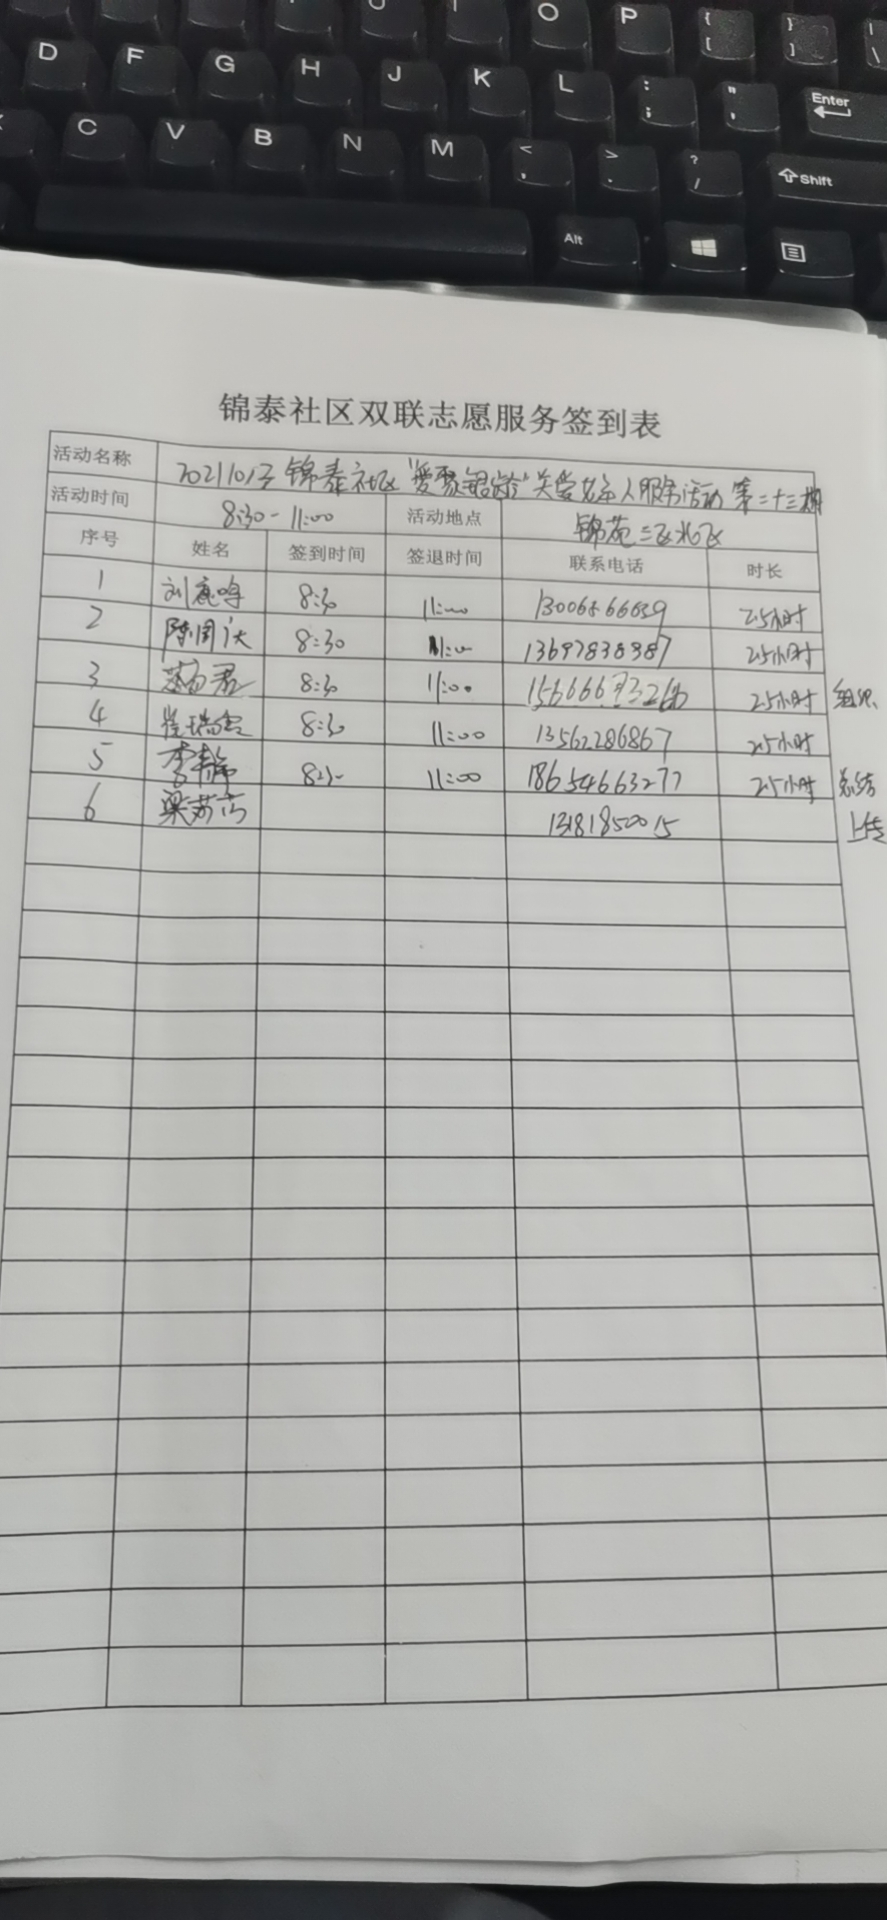 U I O P { [ } ] | \
D F G H J K L : ; " ' Enter
C V B N M < , > . ? / Shift
Alt
锦泰社区双联志愿服务签到表
活动名称 20211013 锦泰社区"爱聚银龄"关爱老年人服务活动 第二十三期
活动时间 8:30-11:00 活动地点 锦苑二区北区
序号 姓名 签到时间 签退时间 联系电话 时长
1 刘鹿鸣 8:30 11:00 13006566639 2.5小时
2 陈国庆 8:30 11:00 13697838387 2.5小时
3 8:30 11:00 2.5小时 组织
4 崔瑞 8:30 11:00 13562286867 2.5小时
5 李静 8:30 11:00 18654663277 2.5小时 总结
6 梁芳芳 13181850015 上传